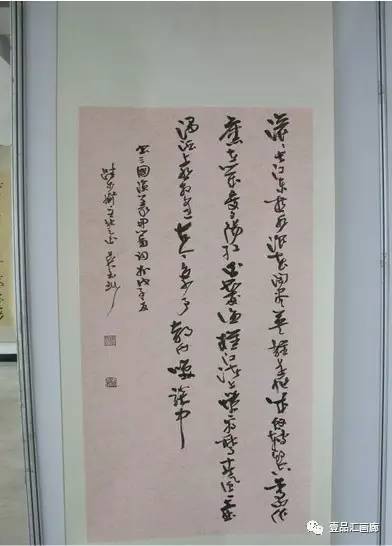 滚滚长江东逝水浪花淘尽英雄是非成败转头空青山依
舊在几度夕阳红白发渔樵江渚上惯看秋月春风一壶
浊酒喜相逢古今多少事都付笑谈中
书三國演义开篇词於戊子夏
壹品汇画廊